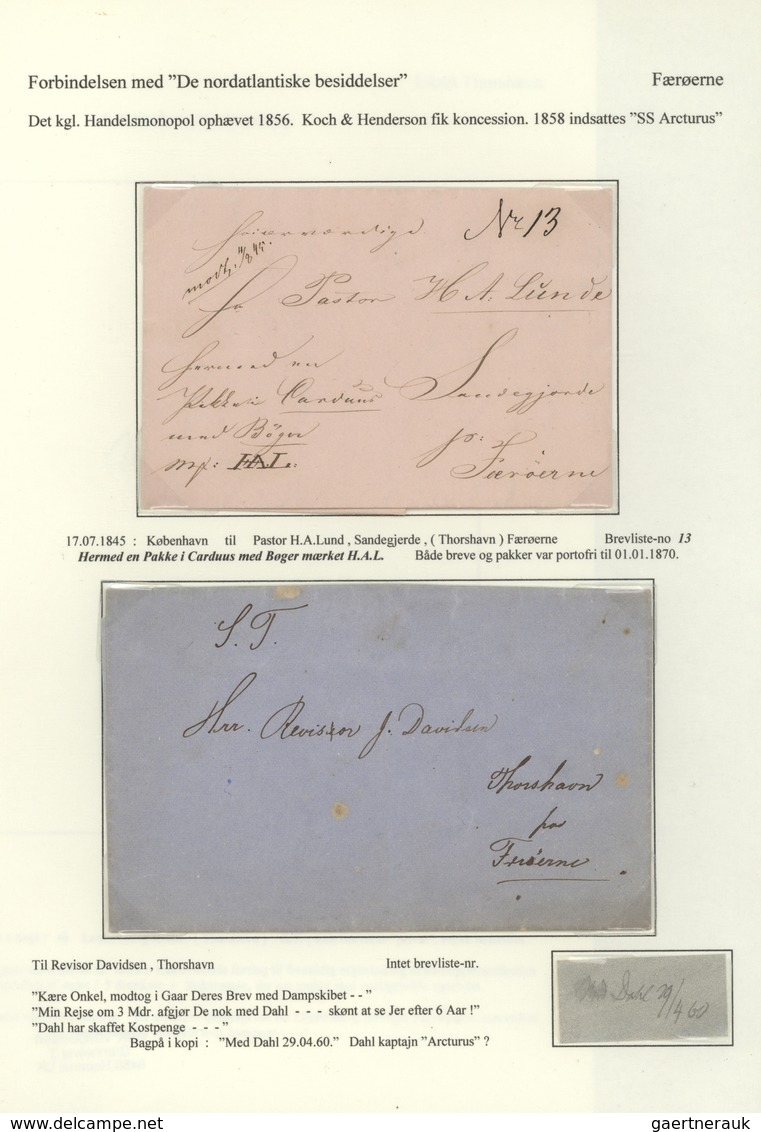 Forbindelsen med "De nordatlantiske besiddelser" Færøerne
Det kgl. Handelsmonopol ophævet 1856. Koch & Henderson fik koncession. 1858 indsattes "SS Arcturus"
Nr 13
modt.
Hr Pastor H A. Lunde
hermed en
Pakke i Carduus Sandegjerde
med Böger p:
mrk: HAL: Færöerne
17.07.1845 : København til Pastor H.A.Lund , Sandegjerde , ( Thorshavn ) Færøerne Brevliste-no 13
Hermed en Pakke i Carduus med Bøger mærket H.A.L. Både breve og pakker var portofri til 01.01.1870.
S. T.
Hrr. Revisor J. Davidsen
Thorshavn
paa
Færöerne
Til Revisor Davidsen , Thorshavn Intet brevliste-nr.
"Kære Onkel, modtog i Gaar Deres Brev med Dampskibet - - "
"Min Rejse om 3 Mdr. afgjør De nok med Dahl - - - skønt at se Jer efter 6 Aar !"
"Dahl har skaffet Kostpenge - - - "
Bagpå i kopi : "Med Dahl 29.04.60." Dahl kaptajn "Arcturus" ?
Med Dahl 29/4 60
delcampe.net
gaertnerauk